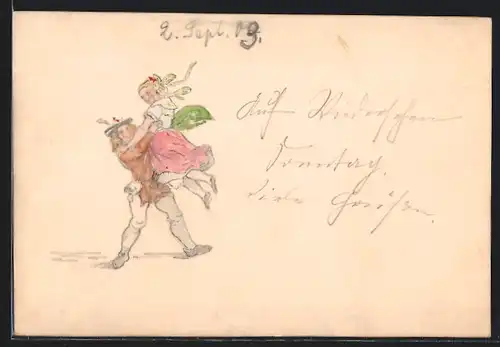 2. Sept. 03.
Auf Wiedersehen
Sonntag.
Viele Grüße.